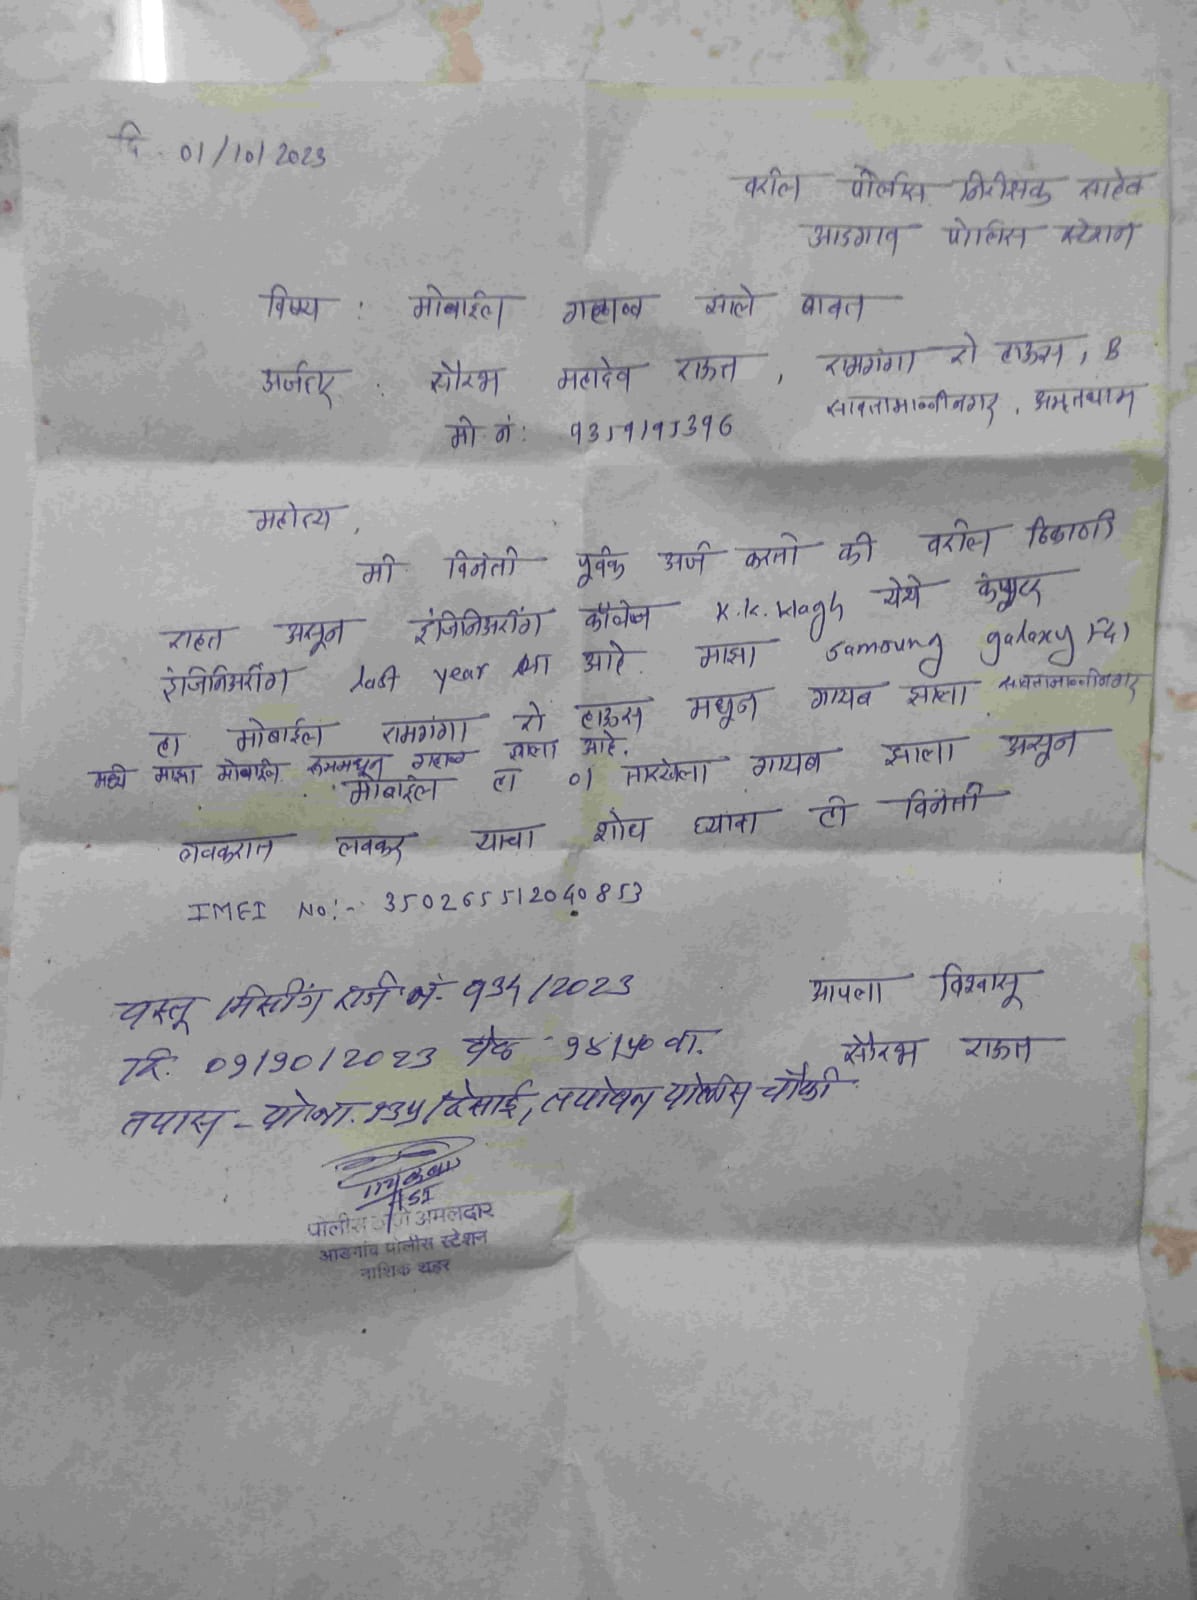 दि. 01/10/2023
वरील पोलिस निरीक्षक साहेब
आडगाव पोलिस स्टेशन
विषय : मोबाईल गहाळ झाले बाबत
अर्जदार : सौरभ महादेव राऊत , रामगंगा रो हाऊस, B
सावतामाळीनगर , अमृतधाम
मो नं : 9359195396
महोदय ,
मी विनंती पूर्वक अर्ज करतो की वरील ठिकाणी
राहत असून इंजिनिअरींग कॉलेज K.K. Wagh येथे कंप्युटर
इंजिनिअरींग last year ला आहे. माझा samsung galaxy F41
हा मोबाईल रामगंगा रो हाऊस मधून गायब झाला सावतामाळीनगर
मध्ये माझा मोबाईल रूममधून गहाळ झाला आहे.
मोबाईल हा 01 तारखेला गायब झाला असून
लवकरात लवकर याचा शोध घ्यावा ही विनंती
IMEI No:- 350265512040853
आपला विश्वासू
सौरभ राऊत
वस्तू मिसींग रजि नं. ९३५/2023
दि. 09/90/2023 वेळ १४/५० वा.
तपास - पो.ना. १३५/देसाई, तपोवन पोलीस चौकी
ASI
पोलीस ठाणे अमलदार
आडगांव पोलीस स्टेशन
नाशिक शहर